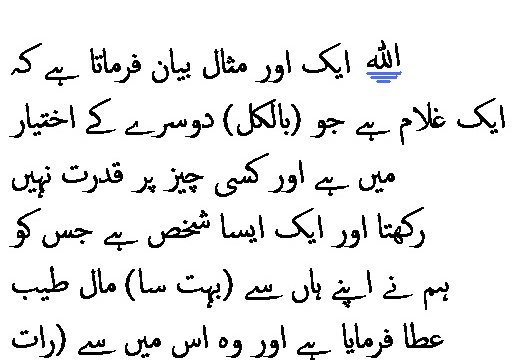 الله ایک اور مثال بیان فرماتا ہے کہ
ایک غلام ہے جو (بالکل) دوسرے کے اختیار
میں ہے اور کسی چیز پر قدرت نہیں
رکھتا اور ایک ایسا شخص ہے جس کو
ہم نے اپنے ہاں سے (بہت سا) مال طیب
عطا فرمایا ہے اور وہ اس میں سے (رات